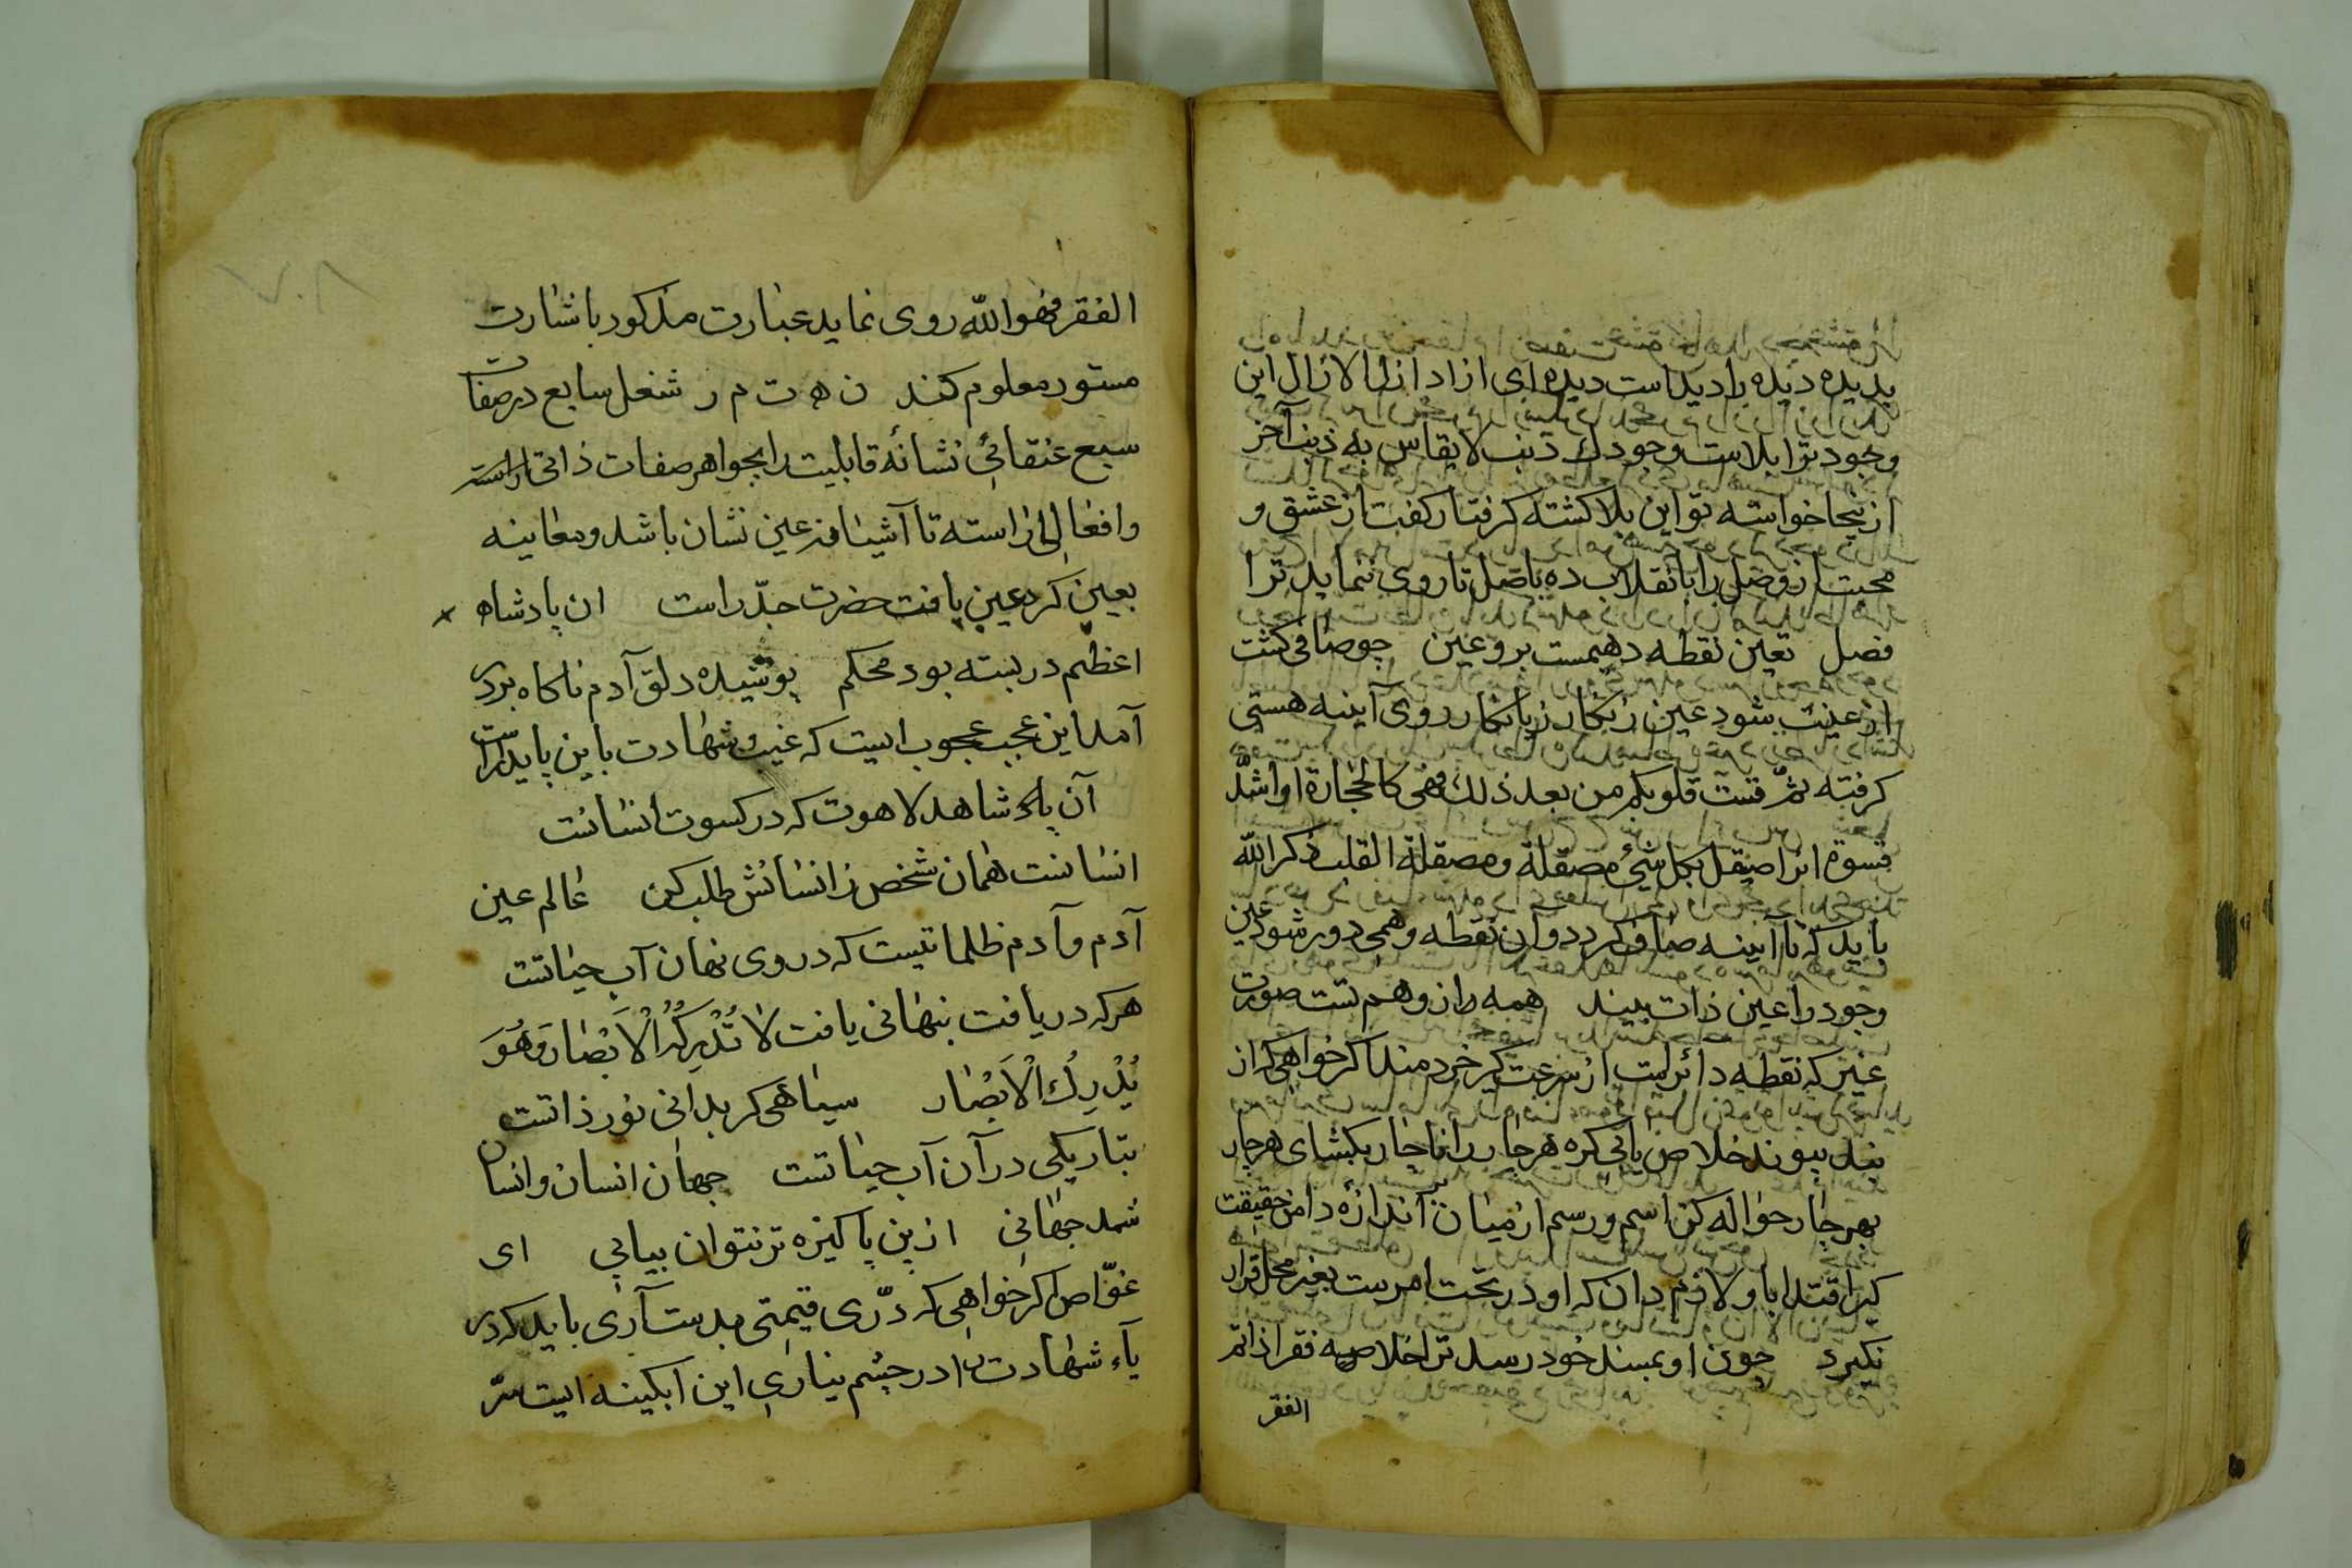 پدیده دیده را دیداست دیدهٔ ای ازاد ازل الازال این
وجود ترا بلاست وجودك ذنب لایقاس به ذنب آخر
ازینجا خواسته تو این بلا کشته کرفتار کفت از عشق و
محبت از وصل را بانقلاب ده باصل تا روی نماید ترا
فصل تعین نقطه وهیمست برو عین جو صافی کشت
از عینت شود عین زنکار روی آینه هستی
کرفته ثمّ قست قلوبکم من بعد ذلك فهی کالحجارة او اشدّ
قسوة انرا صیقل بکل شئ مصقلة ومصقلة القلب ذکر الله
باید که تا آیینه صاف کردد وان نقطه وهمی دور شود عین
وجود را عین ذات بیند همه از وهم تست صورت
غیر که نقطه دائرست از سرعت سیر خردمند اکر خواهی که از
بند پیوند خلاص یابی کره هر چار را ناچار بکشای هر چار
بهر چار حواله کن اسم و رسم از میان بر انداز دامن حقیقت
کیر اقتدا باو لازم دان که او در تحت امریست بغیر محل قرار
نکیرد چون او بمسند خود رسد ترا خلاصیه فقر اذا تم
الفقر
٧٠٨
الفقر فهو الله روی نماید عبارت مذکور باشارت
مستور معلوم کند ن ه ت م ر شغل سابع در صفات
سبع عنقائی نشانهٔ قابلیت را بجواهر صفات ذاتی اراسته
وافعالی اراسته تا آشیانه عین نشان باشد ومعاینه
بعین کرد عین یافت حضرت جدّ راست ان پادشاه
اعظم در بسته بود محکم پوشیده دلق آدم ناکاه بر در
آمد این عجب عجوب ایست که غیب وشهادت باین پایدارست
آن پادشاهد لاهوت که در کسوت انسانست
انسانست همان شخص ز انسانش طلب کن عالم عین
آدم وآدم ظلماتیست که در وی نهان آب حیاتست
هر که دریافت بنهانی یافت لَا تُدْرِكُهُ الْاَبْصَارُ وَهُوَ
يُدْرِكُ الْاَبْصَارَ سیاهی کر بدانی نور ذاتست
بتاریکی در آن آب حیاتست جهان انسان وانسان
شد جهانی ازین پاکیزه تر نتوان بیابی ای
غوّاص اکر خواهی که درّی قیمتی بدست آری باید که در
یاء شهادت را در چشم نیاری این ابکینه ایست سرّ